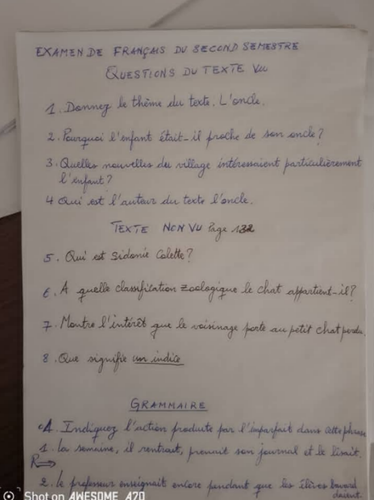 EXAMEN DE FRANÇAIS DU SECOND SEMESTRE
QUESTIONS DU TEXTE VU
1. Donnez le thème du texte. L'oncle.
2. Pourquoi l'enfant était-il proche de son oncle?
3. Quelles nouvelles du village intéressaient particulièrement
l'enfant?
4 Qui est l'auteur du texte l'oncle.
TEXTE NON VU Page 132
5. Qui est Sidonie Colette?
6. A quelle classification zoologique le chat appartient-il?
7. Montre l'intérêt que le voisinage porte au petit chat perdu.
8. Que signifie un indice
GRAMMAIRE
A. Indiquez l'action produite par l'imparfait dans cette phrase
1. La semaine, il rentrait, prenait son journal et le lisait.
R
2. Le professeur enseignait encore pendant que les élèves bavar
daient.
Shot on AWESOME A70